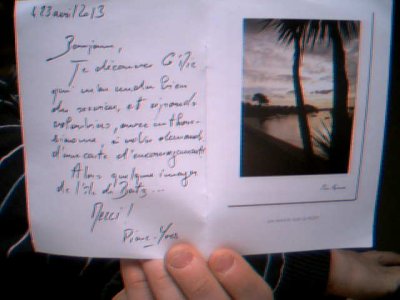 23 avril 2013
Bonjour,
Je découvre
qui m'a rendu bien
des services, et réponds
volontiers, avec enthou-
siasme, à votre demande
d'une carte d'encouragements
Alors quelques images
de l'île de Batz...
Merci !
Pierre-Yves